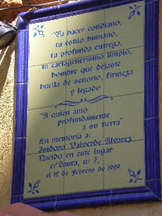 "Tu hacer cotidiano,
tu estilo humano,
tu profunda entrega,
tu cartagenerismo limpio,
hombre que dejaste
huella de señorío, firmeza
y legado"
"A quien amó
profundamente
a su tierra"
En memoria a:
Isidoro Valverde Álvarez
Nacido en este lugar
c/ Saura, nº 7,
el 15 de febrero de 1929